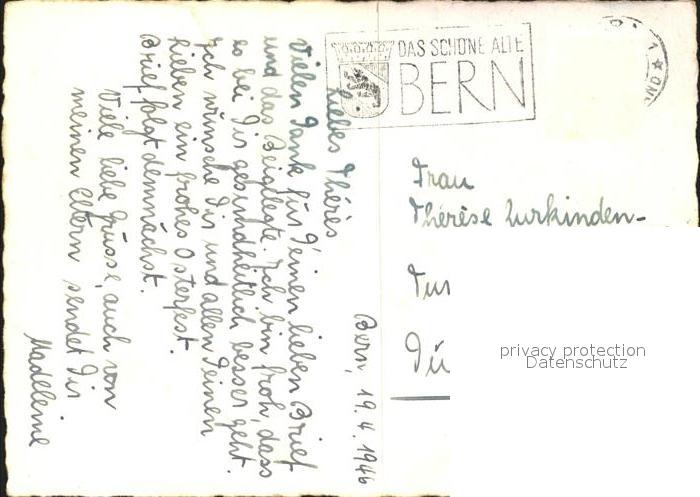 DAS SCHÖNE ALTE
BERN
Bern, 19.4.1946
Liebes Thérès
Vielen Dank für Deinen lieben Brief
und das Beigelegte. Ich bin froh, dass
es bei Dir gesundheitlich besser geht.
Ich wünsche Dir und allen Deinen
lieben ein frohes Osterfest.
Brief folgt demnächst.
Viele liebe Grüsse, auch von
meinen Eltern sendet Dir
Madeleine
Frau
Thérèse Zurkinden-
Dü
privacy protection
Datenschutz